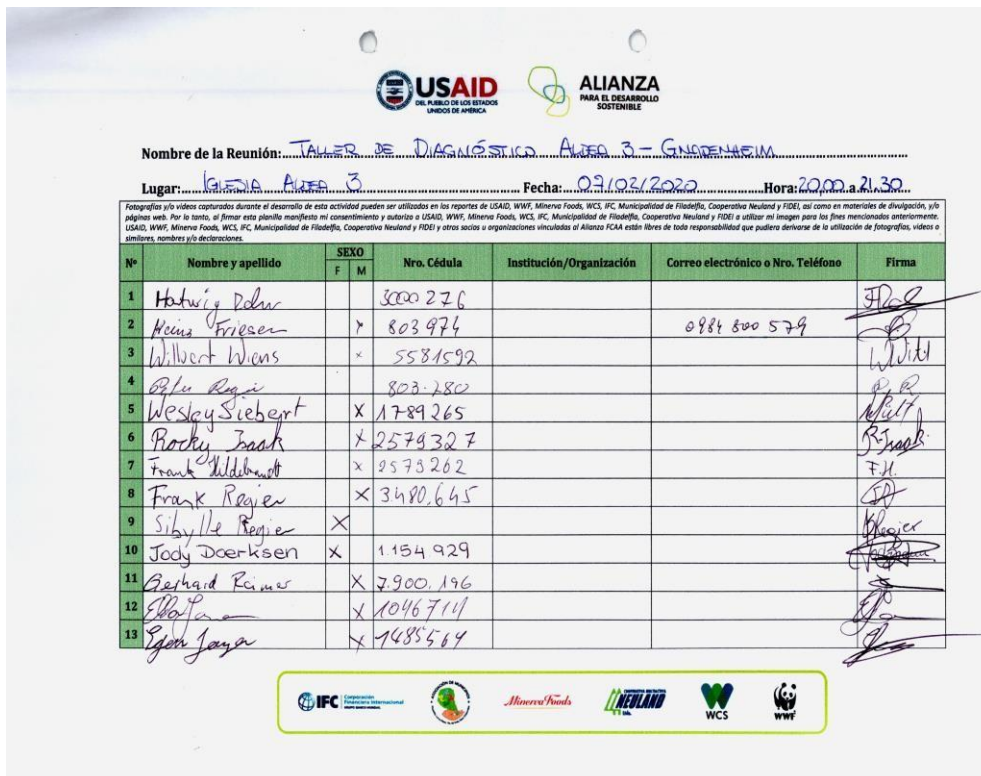 USAID
DEL PUEBLO DE LOS ESTADOS
UNIDOS DE AMÉRICA
ALIANZA
PARA EL DESARROLLO
SOSTENIBLE
Nombre de la Reunión: TALLER DE DIAGNÓSTICO ALDEA 3 - GNADENHEIM
Lugar: IGLESIA ALDEA 3 Fecha: 07/02/2020 Hora: 20,00 a 21,30
Fotografías y/o videos capturados durante el desarrollo de esta actividad pueden ser utilizados en los reportes de USAID, WWF, Minerva Foods, WCS, IFC, Municipalidad de Filadelfia, Cooperativa Neuland y FIDEI, así como en materiales de divulgación, y/o
páginas web. Por lo tanto, al firmar esta planilla manifiesto mi consentimiento y autorizo a USAID, WWF, Minerva Foods, WCS, IFC, Municipalidad de Filadelfia, Cooperativa Neuland y FIDEI a utilizar mi imagen para los fines mencionados anteriormente.
USAID, WWF, Minerva Foods, WCS, IFC, Municipalidad de Filadelfia, Cooperativa Neuland y FIDEI y otros socios u organizaciones vinculadas al Alianza FCAA están libres de toda responsabilidad que pudiera derivarse de la utilización de fotografías, videos o
similares, nombres y/o declaraciones.
Nº Nombre y apellido SEXO F M Nro. Cédula Institución/Organización Correo electrónico o Nro. Teléfono Firma
1 Hatwig 3000 276
2 Heinz Friesen x 803974 0984 800 579
3 Wilbert Wiens x 5581592
4 803.280
5 Wesley Siebert X 1789265
6 Rocky Isaak X 2579327 R. Isaak
7 Frank Hildebrandt x 2579262 F.H.
8 Frank Regier X 3480.645
9 Sibylle Regier X Regier
10 Jody Doerksen X 1.154 929
11 Gerhard Reimer X 7.900.196
12 X 1046714
13 Egon X 1485564
IFC Corporación
Financiera Internacional
GRUPO BANCO MUNDIAL
Minerva Foods
NEULAND
Ltda.
WCS
WWF